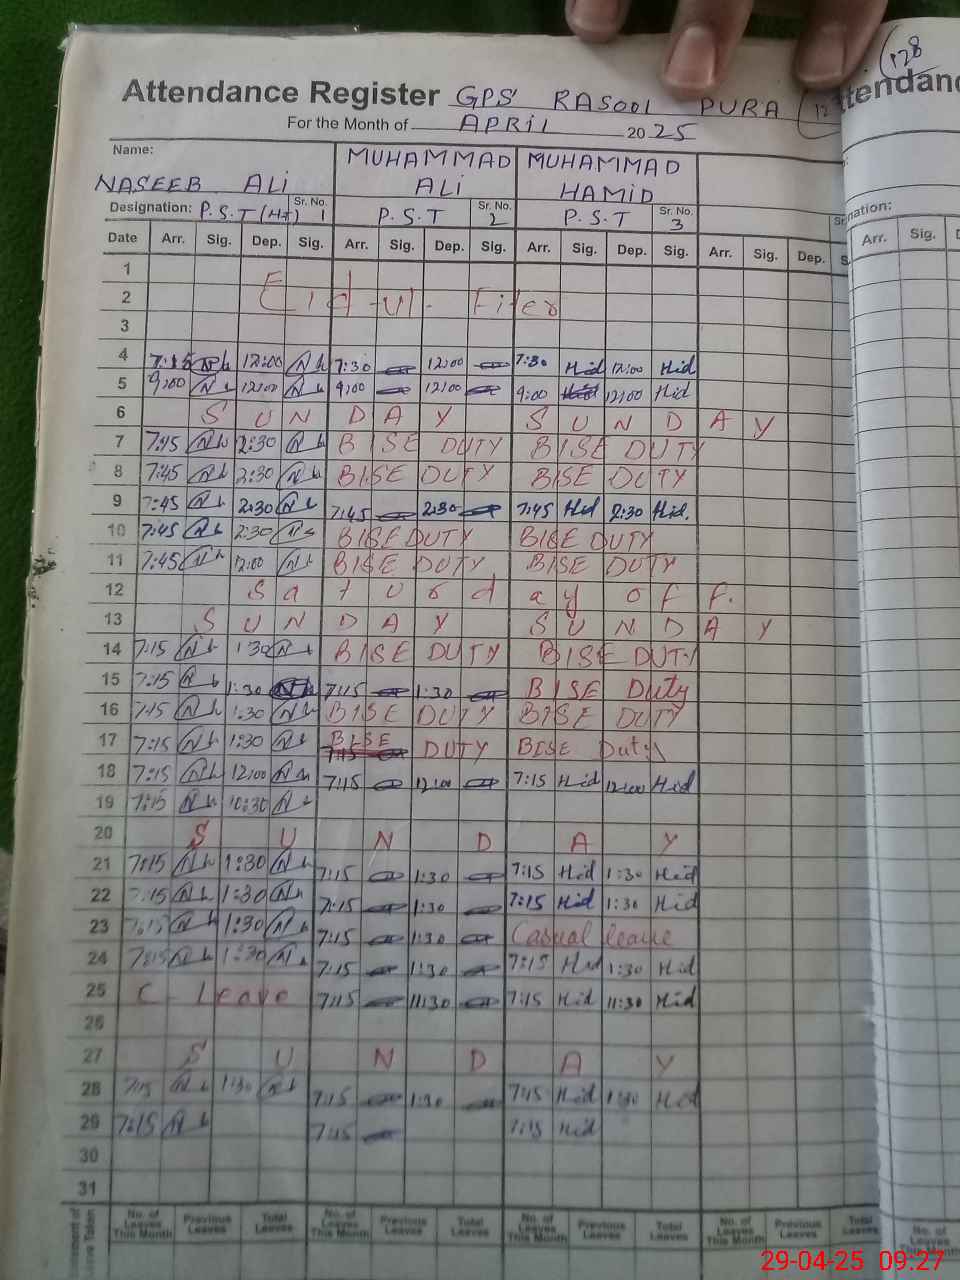 Attendance Register GPS RASOOL PURA
128
For the Month of APRIL 2025
Name: NASEEB ALI MUHAMMAD ALI MUHAMMAD HAMID
Designation: P.S.T (HT) Sr. No. 1 P.S.T Sr. No. 2 P.S.T Sr. No. 3
Date Arr. Sig. Dep. Sig. Arr. Sig. Dep. Sig. Arr. Sig. Dep. Sig. Arr. Sig. Dep. Arr. Sig.
1
2 Eid-ul-Fiter
3
4 7:15 12:00 7:30 12:00 7:30 Hid 12:00 Hid
5 9:00 12:00 9:00 12:00 9:00 Hid 12:00 Hid
6 SUNDAY SUNDAY
7 7:45 2:30 BISE DUTY BISE DUTY
8 7:45 2:30 BISE DUTY BISE DUTY
9 7:45 2:30 7:45 2:30 7:45 Hid 2:30 Hid.
10 7:45 2:30 BISE DUTY BISE DUTY
11 7:45 12:00 BISE DUTY BISE DUTY
12 Saturday off.
13 SUNDAY SUNDAY
14 7:15 1:30 BISE DUTY BISE DUTY
15 7:15 1:30 7:15 1:30 BISE Duty
16 7:15 1:30 BISE DUTY BISE DUTY
17 7:15 1:30 BISE DUTY BISE Duty
18 7:15 12:00 7:15 12:00 7:15 Hid 12:00 Hid
19 7:15 10:30
20 SUNDAY
21 7:15 1:30 7:15 1:30 7:15 Hid 1:30 Hid
22 7:15 1:30 7:15 1:30 7:15 Hid 1:30 Hid
23 7:15 1:30 7:15 1:30 Casual leave
24 7:15 1:30 7:15 1:30 7:15 Hid 1:30 Hid
25 C-Leave 7:15 11:30 7:15 Hid 11:30 Hid
26
27 SUNDAY
28 7:15 1:30 7:15 1:30 7:15 Hid 1:30 Hid
29 7:15 7:15 7:15 Hid
30
31
No. of Leaves This Month Previous Leaves Total Leaves No. of Leaves This Month Previous Leaves Total Leaves No. of Leaves This Month Previous Leaves Total Leaves No. of Leaves This Month Previous Leaves Total Leaves
29-04-25 09:27